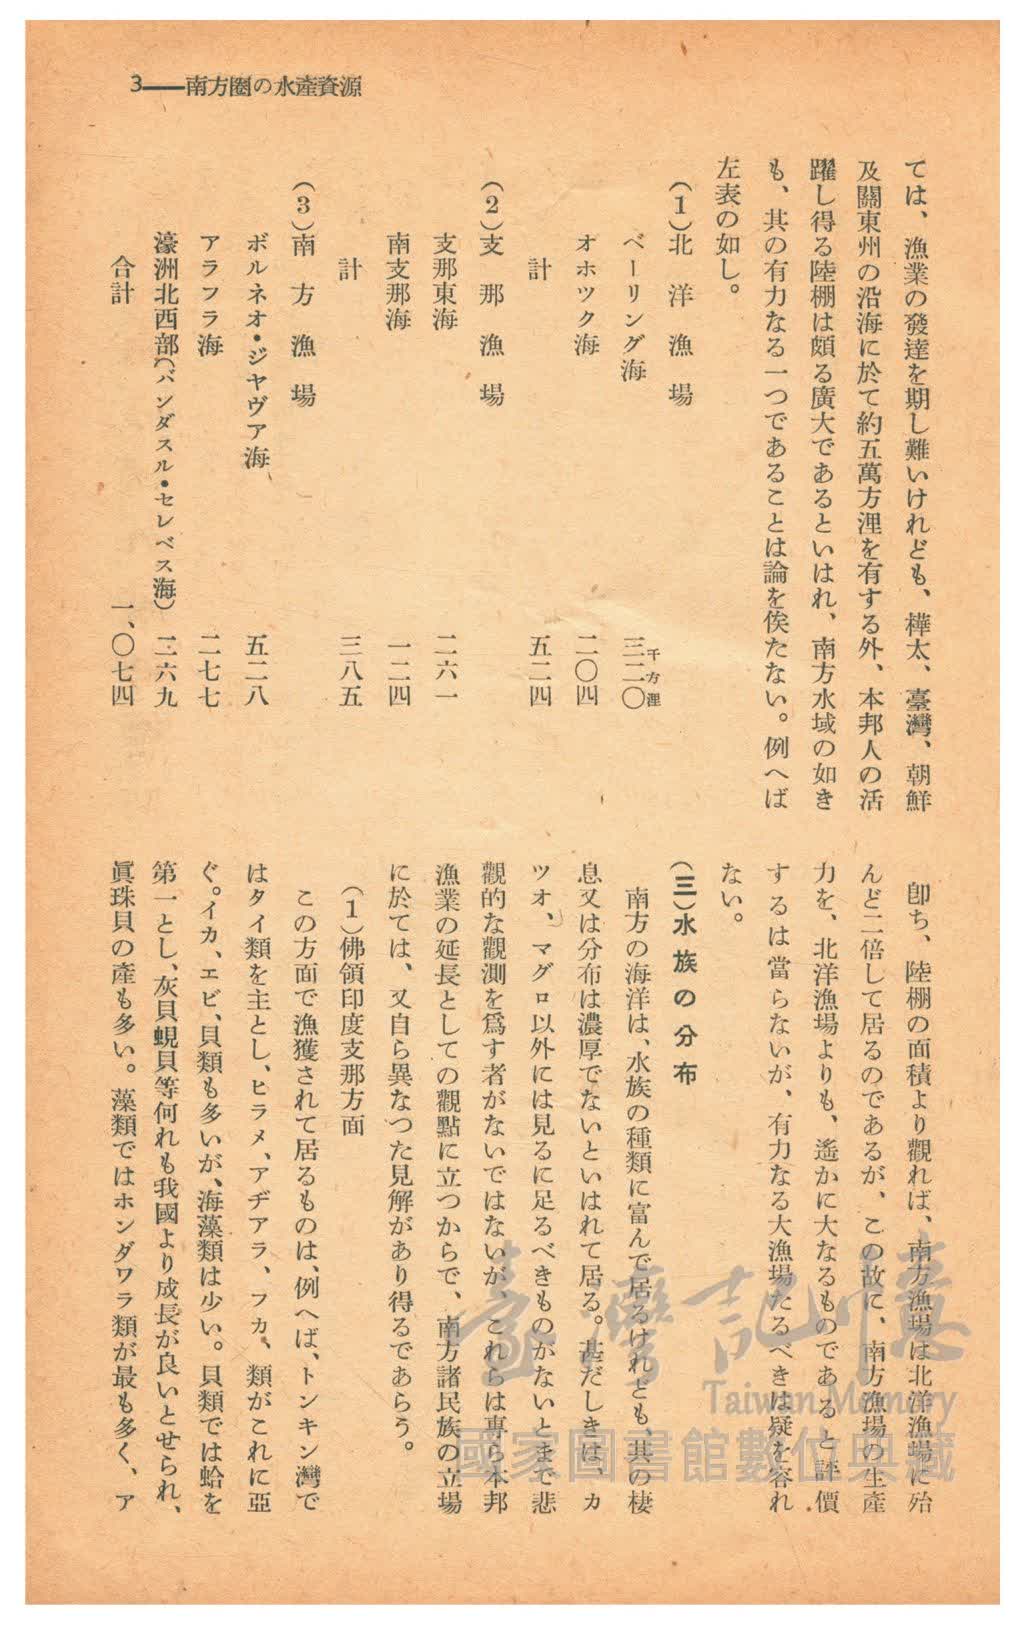 3——南方圈の水產資源
ては、漁業の發達を期し難いけれども、樺太、臺灣、朝鮮
及關東州の沿海に於て約五萬方浬を有する外、本邦人の活
躍し得る陸棚は頗る廣大であるといはれ、南方水域の如き
も、其の有力なる一つであることは論を俟たない。例へば
左表の如し。
(1)北洋漁場
ベーリング海 三二〇千方浬
オホツク海 二〇四
計 五二四
(2)支那漁場
支那東海 二六一
南支那海 一二四
計 三八五
(3)南方漁場
ボルネオ・ジヤヴア海 五二八
アラフラ海 二七七
濠洲北西部(バンダスル・セレベス海) 二六九
合計 一、〇七四
卽ち、陸棚の面積より觀れば、南方漁場は北洋漁場に殆
んど二倍して居るのであるが、この故に、南方漁場の生產
力を、北洋漁場よりも、遙かに大なるものであると評價
するは當らないが、有力なる大漁場たるべきは疑を容れ
ない。
(三)水族の分布
南方の海洋は、水族の種類に富んで居るけれども、其の棲
息又は分布は濃厚でないといはれて居る。甚だしきは、カ
ツオ、マグロ以外には見るに足るべきものがないとまで悲
觀的な觀測を爲す者がないではないが、これらは專ら本邦
漁業の延長としての觀點に立つからで、南方諸民族の立場
に於ては、又自ら異なつた見解があり得るであらう。
(1)佛領印度支那方面
この方面で漁獲されて居るものは、例へば、トンキン灣で
はタイ類を主とし、ヒラメ、アヂアラ、フカ、類がこれに亞
ぐ。イカ、エビ、貝類も多いが、海藻類は少い。貝類では蛤を
第一とし、灰貝蜆貝等何れも我國より成長が良いとせられ、
眞珠貝の產も多い。藻類ではホンダワラ類が最も多く、ア
臺灣記憶
Taiwan Memory
國家圖書館數位典藏